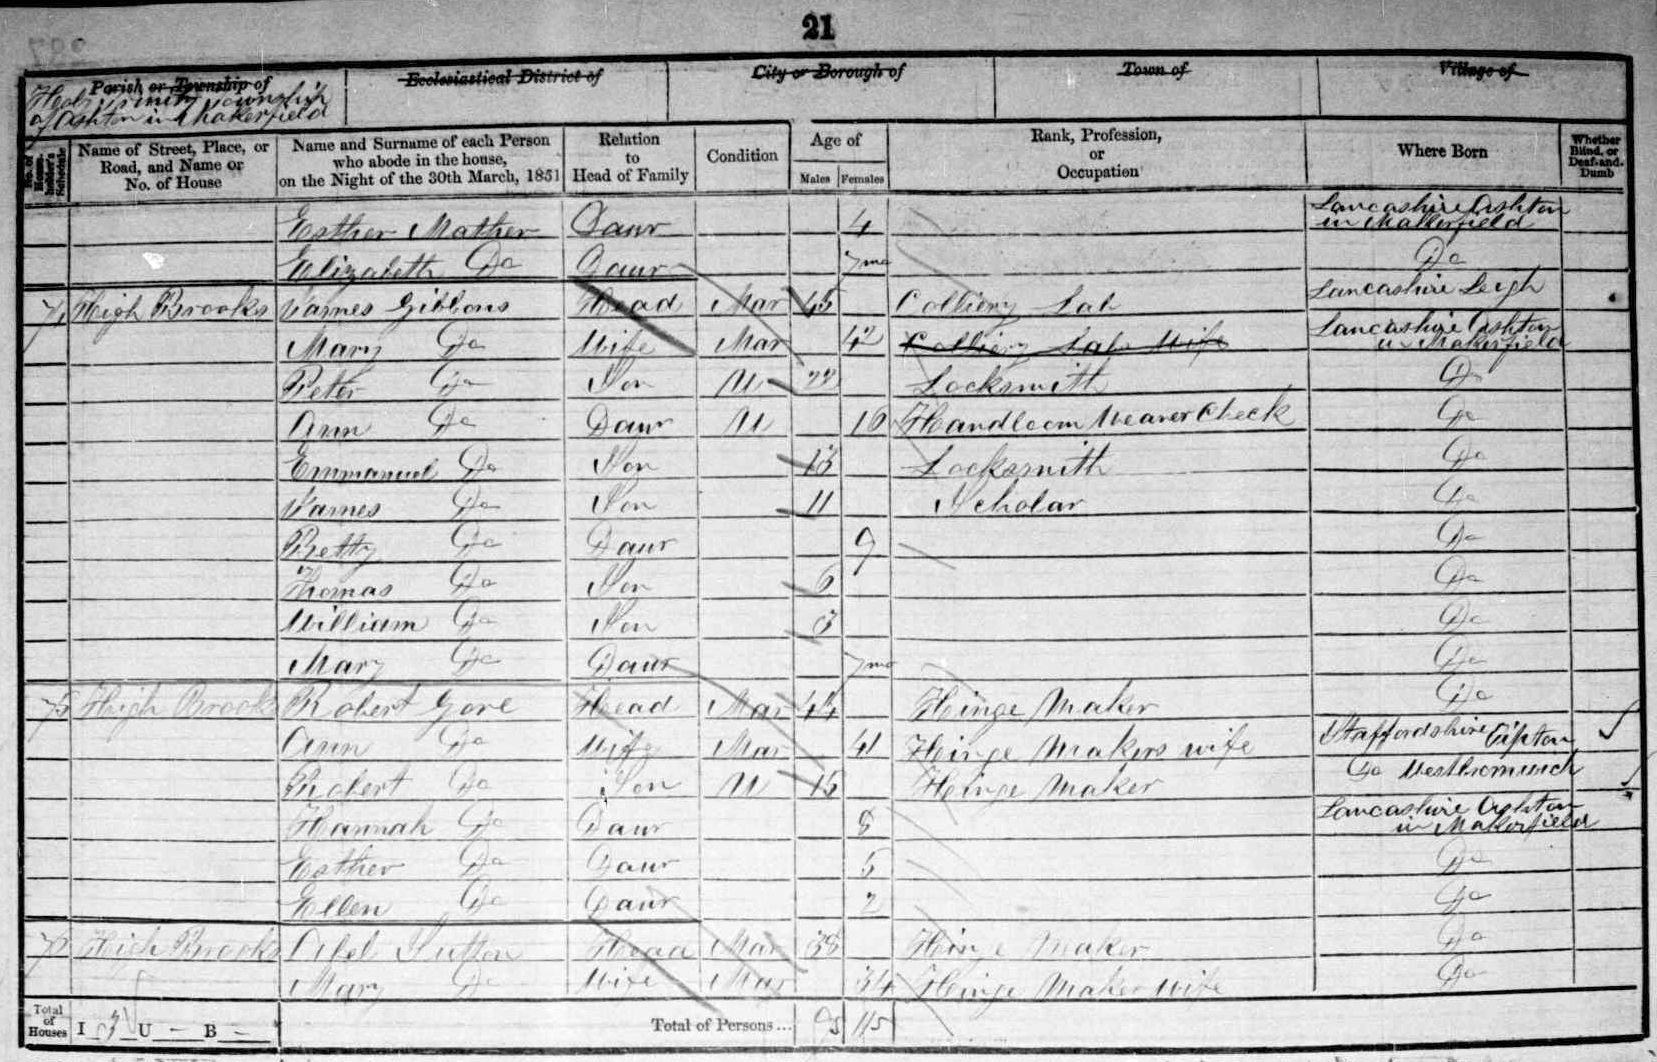 21
Parish or Township of Ecclesiastical District of City or Borough of Town of Village of
Township
of Ashton in Makerfield
No. of Householder's Schedule Name of Street, Place, or Road, and Name or No. of House Name and Surname of each Person who abode in the house, on the Night of the 30th March, 1851 Relation to Head of Family Condition Age of Males Females Rank, Profession, or Occupation Where Born Whether Blind, or Deaf-and-Dumb
Esther Mather Daur 4 Lancashire Ashton in Makerfield
Elizabeth Do Daur 7mo Do
74 High Brooks James Gibbons Head Mar 45 Colliery Lab Lancashire Leigh
Mary Do Wife Mar 42 Colliery Labs Wife Lancashire Ashton in Makerfield
Peter Do Son U 22 Locksmith Do
Ann Do Daur U 16 Handloom Weaver Check Do
Emmanuel Do Son 13 Locksmith Do
James Do Son 11 Scholar Do
Betty Do Daur 9 Do
Thomas Do Son 6 Do
William Do Son 3 Do
Mary Do Daur 7mo Do
75 High Brooks Robert Gore Head Mar 44 Hinge Maker Do
Ann Do Wife Mar 41 Hinge Makers wife Staffordshire Tipton
Robert Do Son U 15 Hinge Maker Do Westbromwich
Hannah Do Daur 8 Lancashire Ashton in Makerfield
Esther Do Daur 5 Do
Ellen Do Daur 2 Do
High Brooks Abel Sutton Head Mar 38 Hinge Maker Do
Mary Do Wife Mar 34 Hinge Maker wife Do
Total of Houses I 3 U - B - Total of Persons...